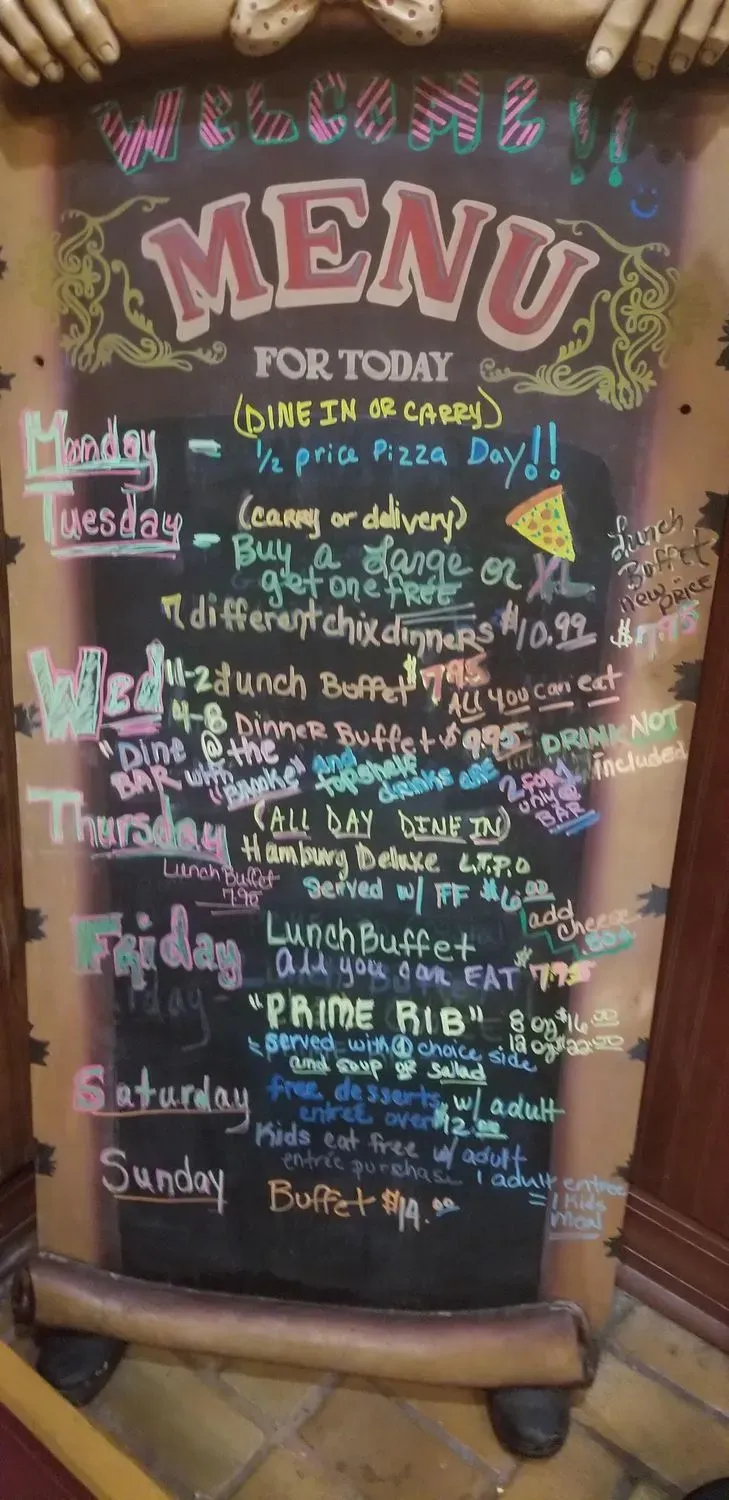 WELCOME!!
MENU
FOR TODAY
(DINE IN OR CARRY)
Monday - 1/2 price Pizza Day!!
Tuesday - (carry or delivery)
Buy a Large or XL
get one FREE
7 different chix dinners $10.99
Lunch
Buffet
new PRICE
$7.95
Wed 11-2 Lunch Buffet $7.95
ALL you can eat
4-8 Dinner Buffet $9.95 DRINK NOT
included
"Dine @ the
BAR with
and
topshelf
drinks are
2 for 1
only @
BAR
Thursday (ALL DAY DINE IN)
Hamburg Deluxe L.T.P.O
Lunch Buffet
7.95
Served w/ FF $6.00
add
cheese
.50¢
Friday Lunch Buffet
all you can EAT $7.95
"PRIME RIB" 8 oz $16.00
12 oz $22.00
served with 1 choice side
and soup or salad
Saturday free desserts w/ adult
entree over $12.00
Kids eat free w/ adult
entrée purchase 1 adult entree
= 1 Kids
Meal
Sunday Buffet $14.00